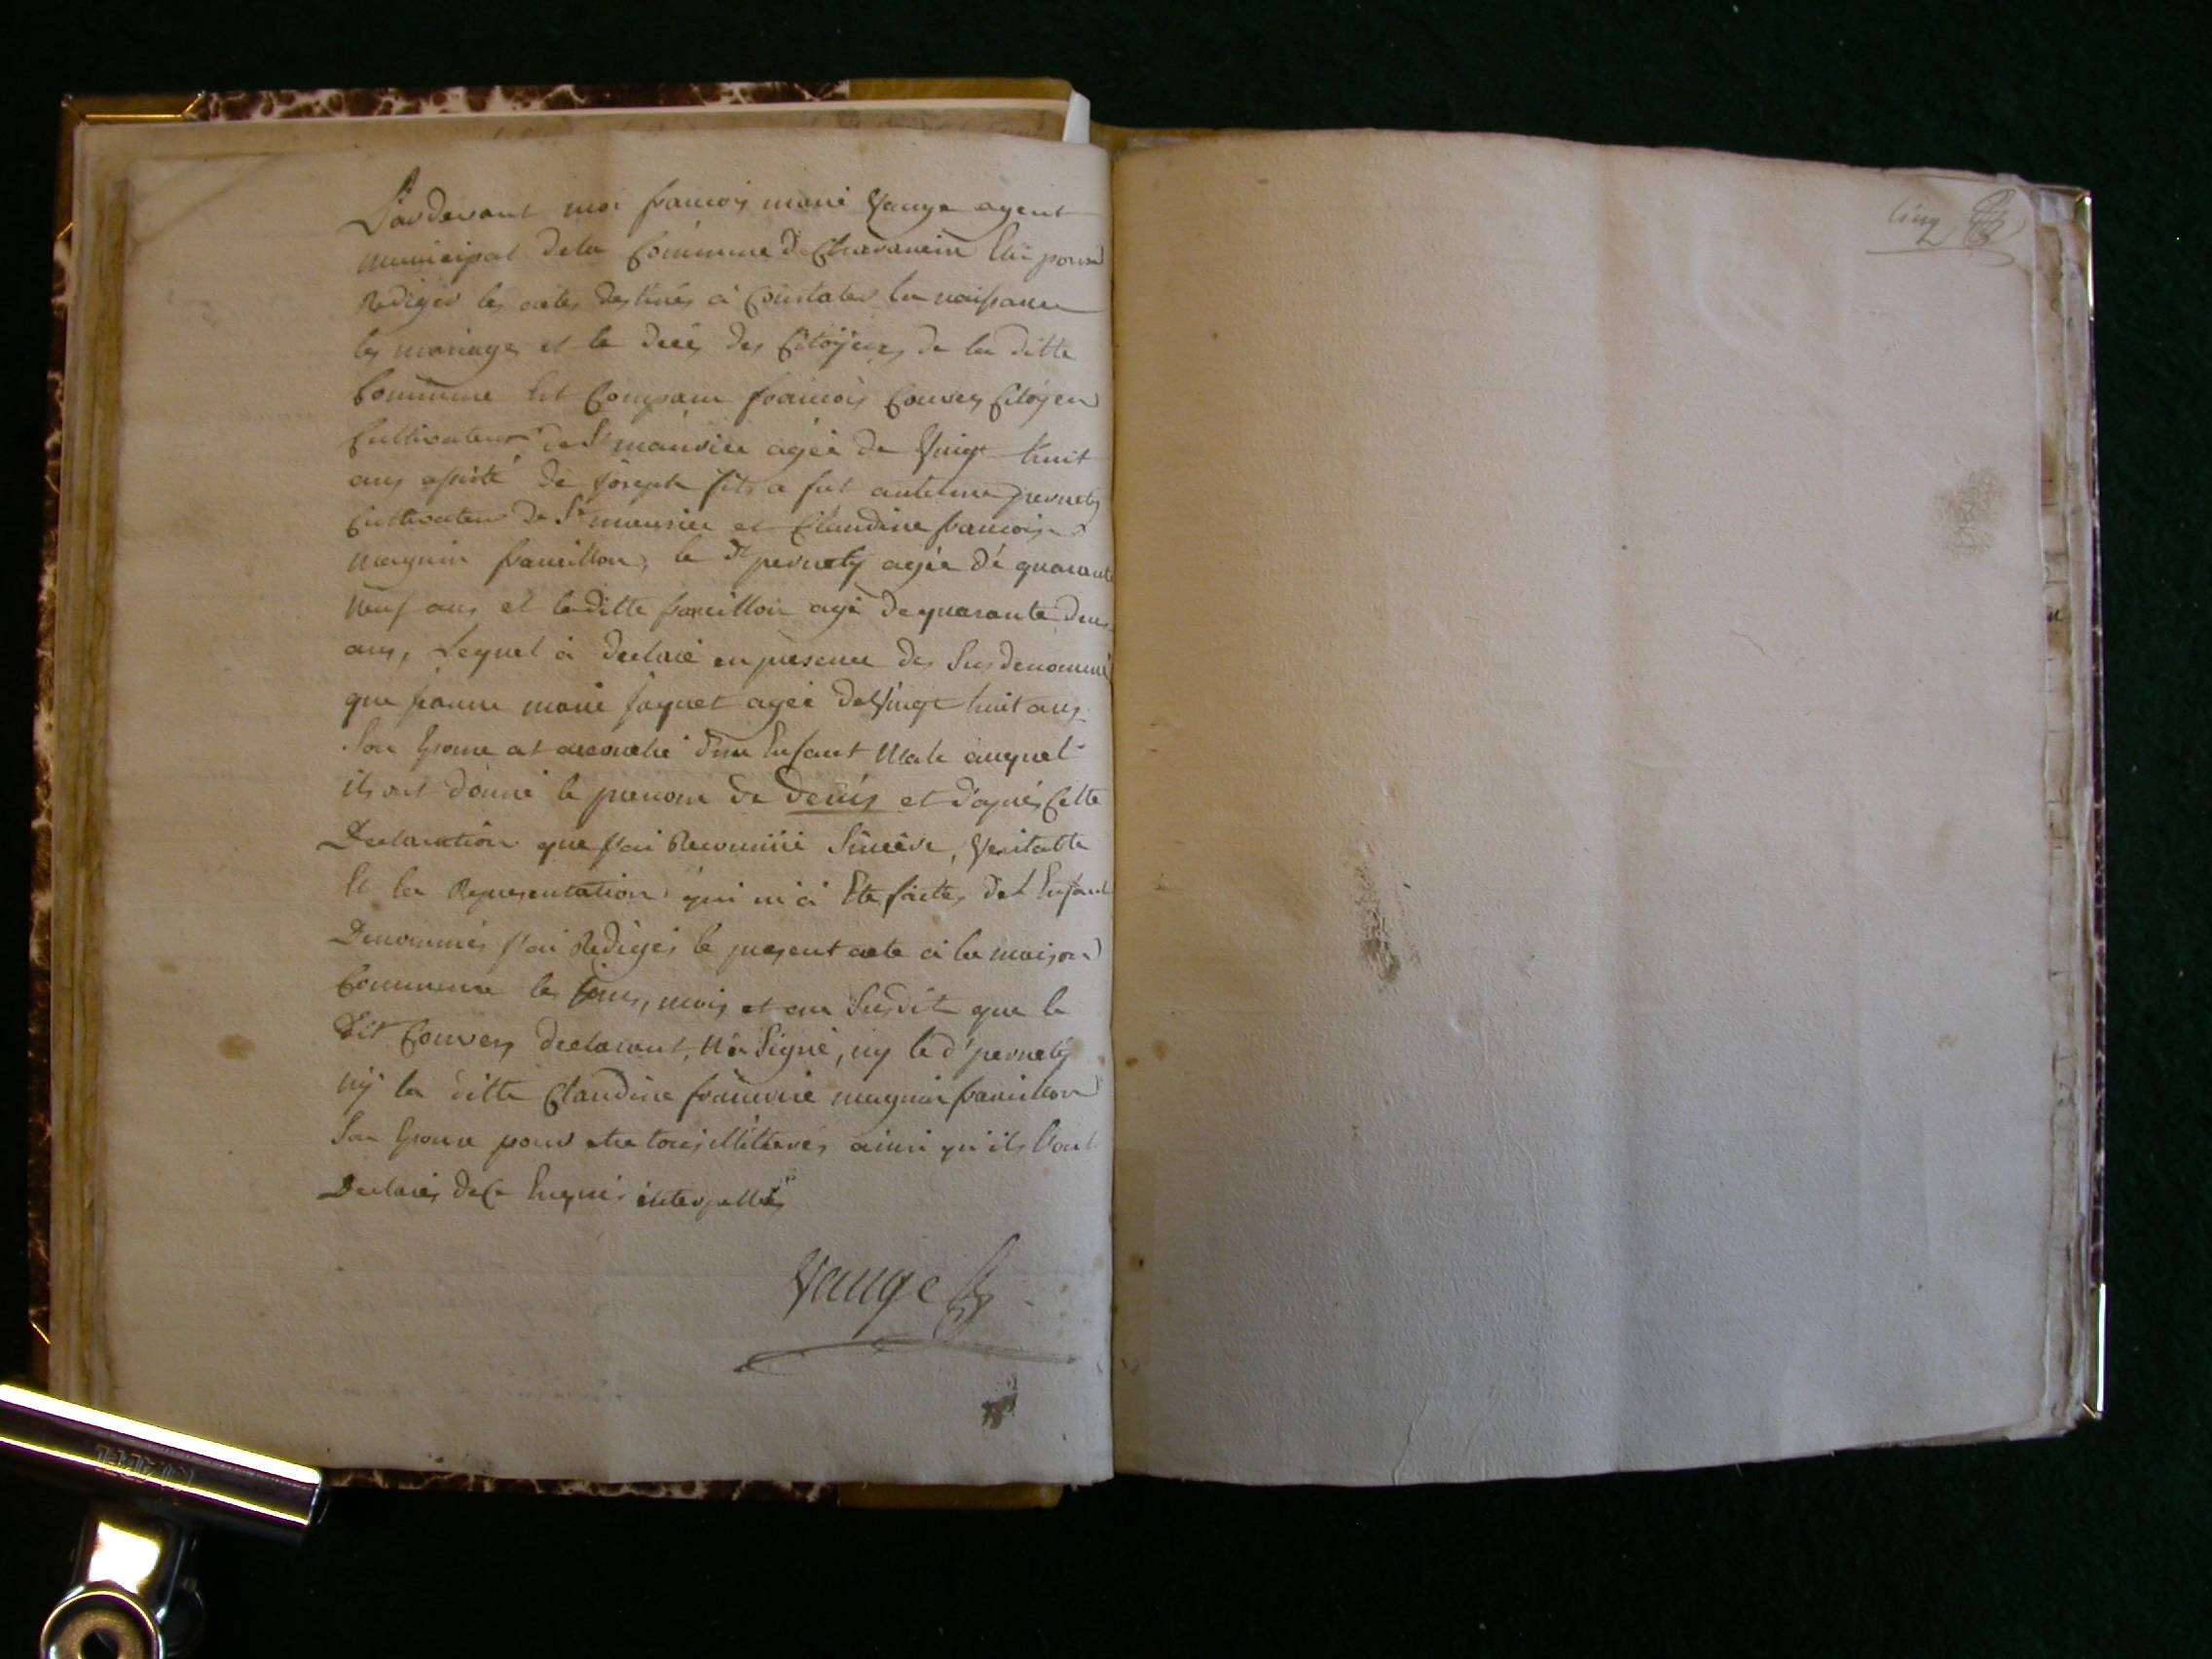 Pardevant moi francois marie Vauge agent
municipal dela Commune de Charancin Elü pour
Rediger les actes destinés à Constater la naissance
les mariages et le decés des Citoÿens de la ditte
Commune Est Comparu francois Convers Citoÿen
Cultivateur de St maurice agée de Vingt huit
ans assisté de joseph fils a feu anthelme pernety
Cultivateur de St maurice et Claudine francoise
magnin francillon, le dt pernety agée dé quarante
neuf ans et laditte francillon agé de quarante deux
ans, Lequel à declaré en presence des Susdenommé
que jeanne marie jaquet agée de Vingt huit ans
Son Epouse at accouché d'un Enfant Male auquel
ils ont donné le prenom de denis et d'aprés Cette
Declaration que j'ai Reconnüe Sincère, Veritable
Et la Representation qui m'à Ete faites de L'Enfant
Denommés j'ai Redigés le present acte à la maison
Commune les jour, mois et an Susdit que le
dit Convers declarant, N'a Signé, ny le dt pernety
nÿ la ditte Claudine francoise magnin francillon
Son Epouse pour etre tous illiterés ainsi qu'ils l'ont
Declarés de Ce Enquis interpellés
Vauge
Cinq